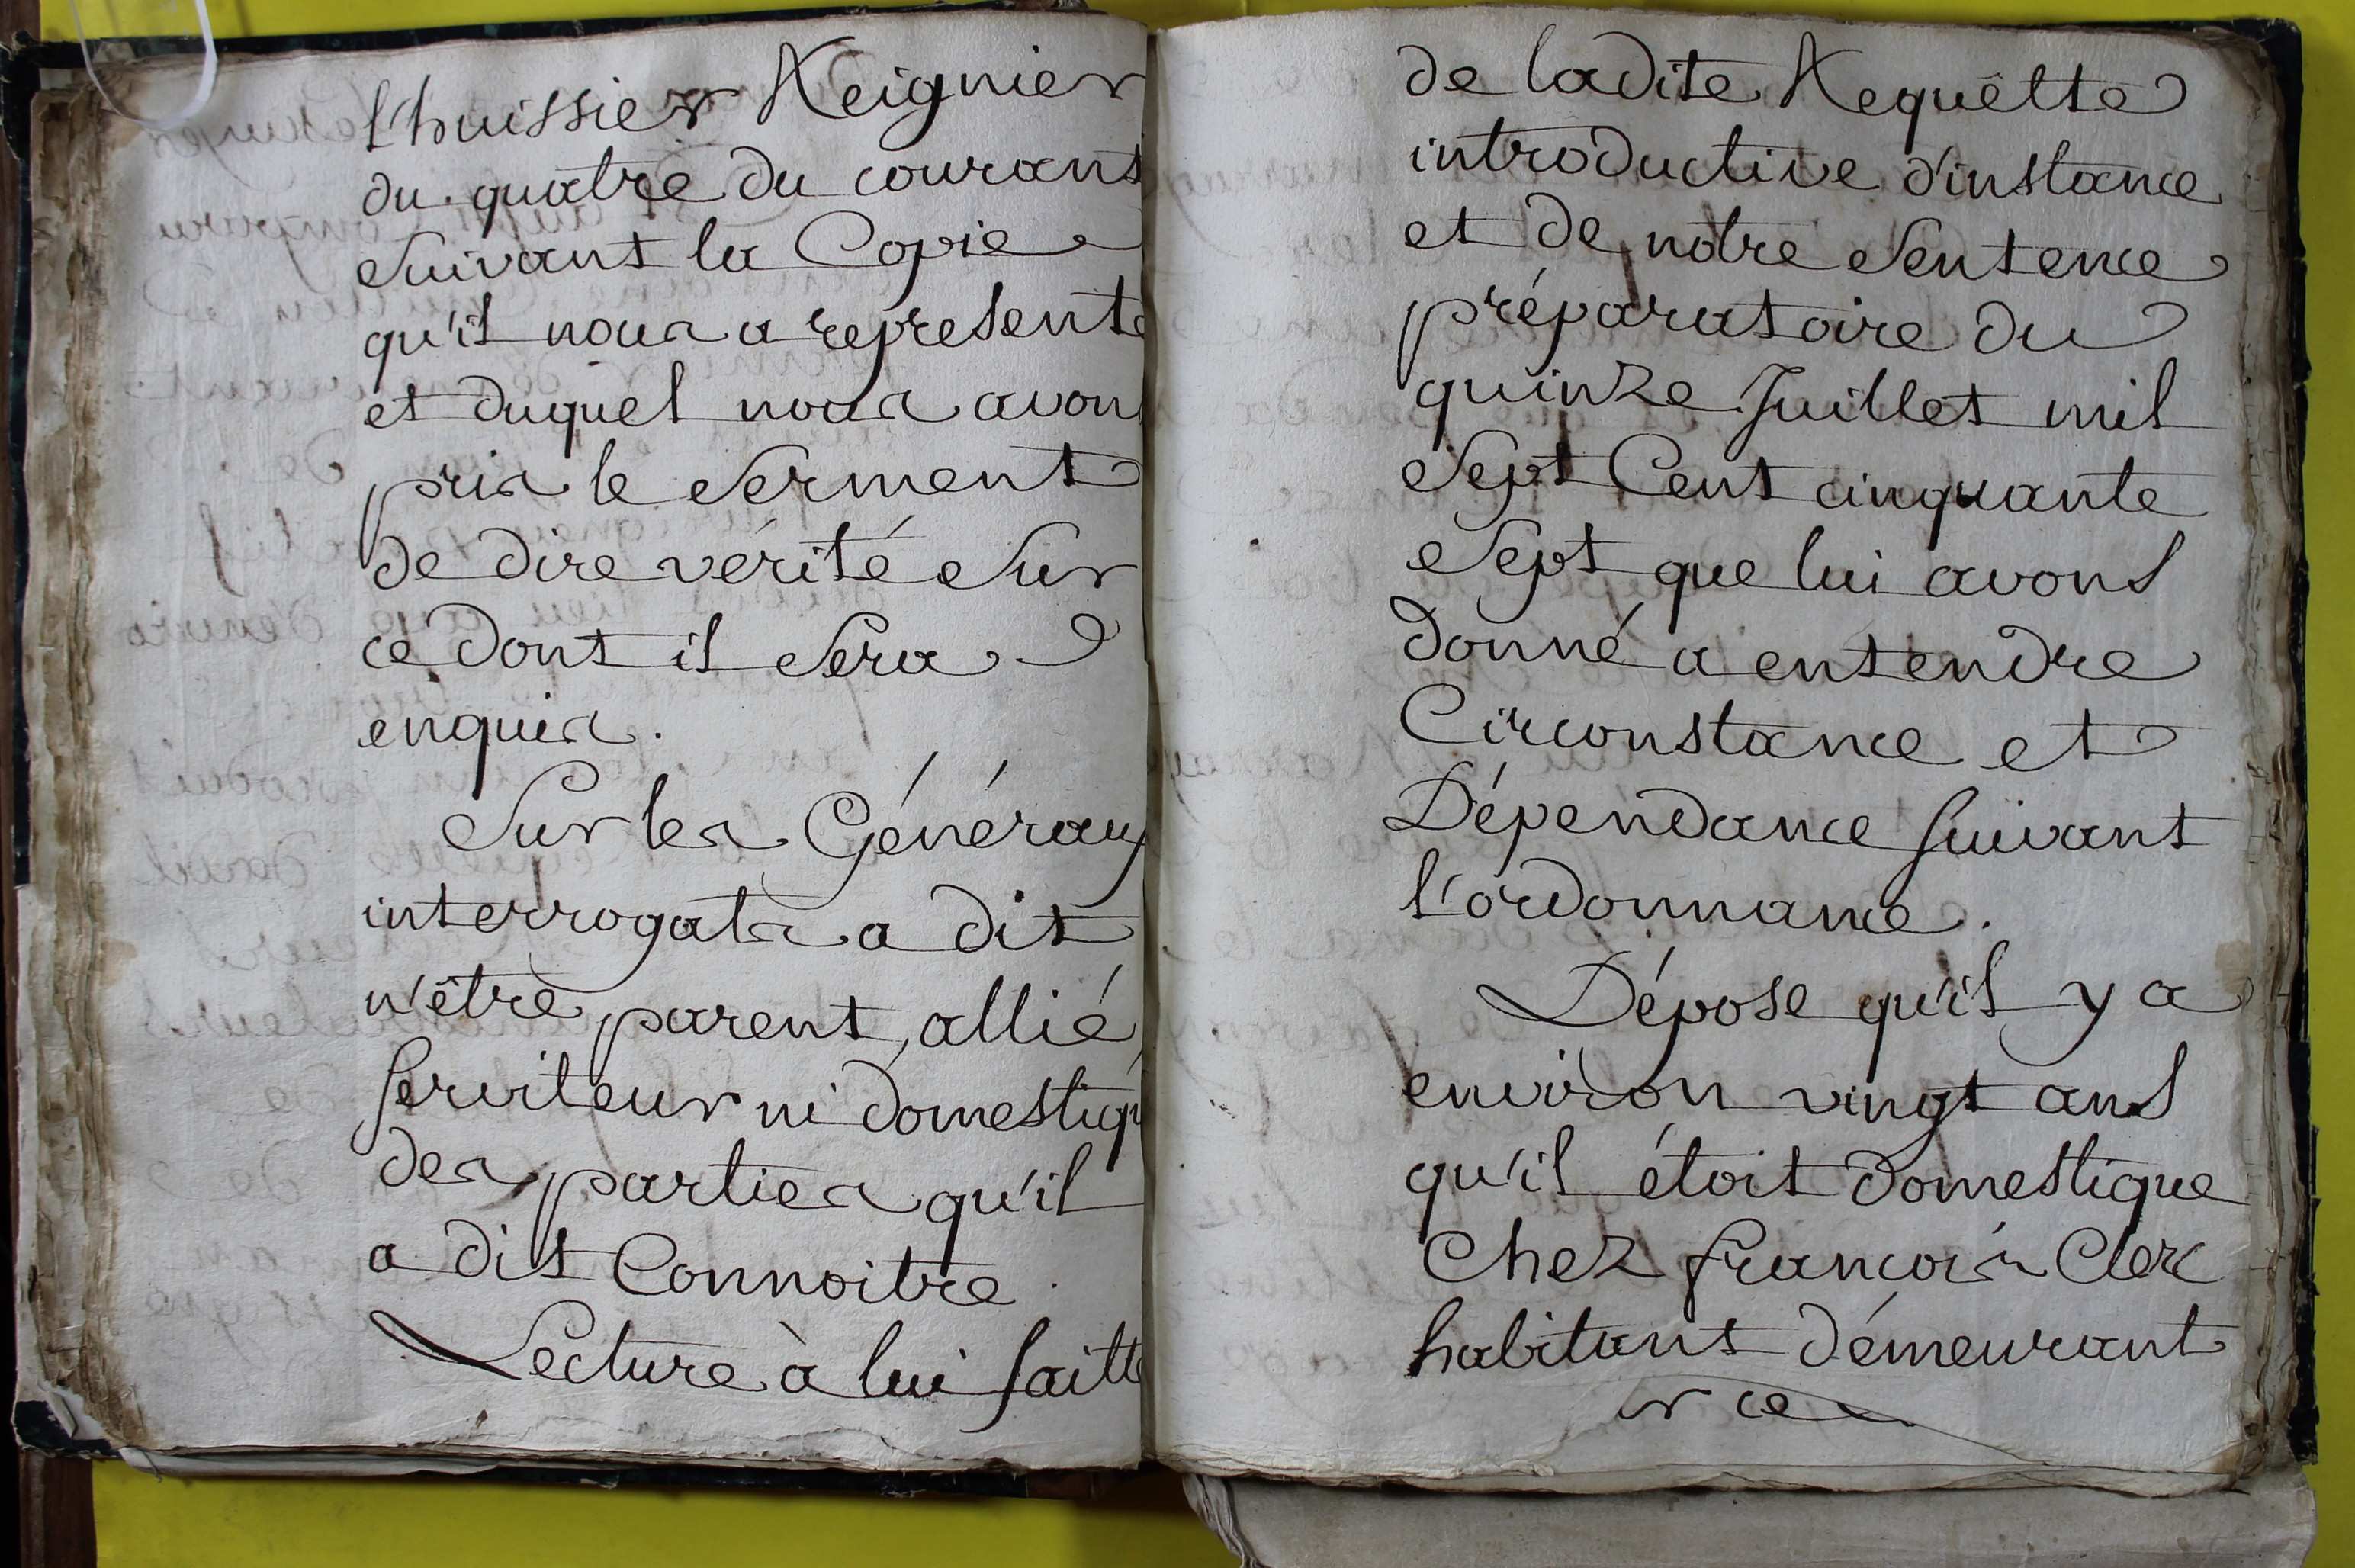 l'huissier Reignier
du quatre du courant
Suivant la Copie
qu'il nous a representé
et duquel nous avons
pris le Serment
de dire vérité Sur
ce dont il Sera
enquis.
Sur les Généraux
interrogats a dit
n'être parent, allié
serviteur ni domestiqu
des parties qu'il
a dit Connoitre.
Lecture à lui faitte
de ladite Requêtte
introductive d'instance
et de notre Sentence
préparatoire du
quinze Juillet mil
Sept Cent cinquante
Sept que lui avons
donné a entendre
Circonstance et
Dépendance suivant
l'ordonnance.
Dépose qu'il y a
environ vingt ans
qu'il étoit domestique
Chez francois Clerc
habitant démeurant